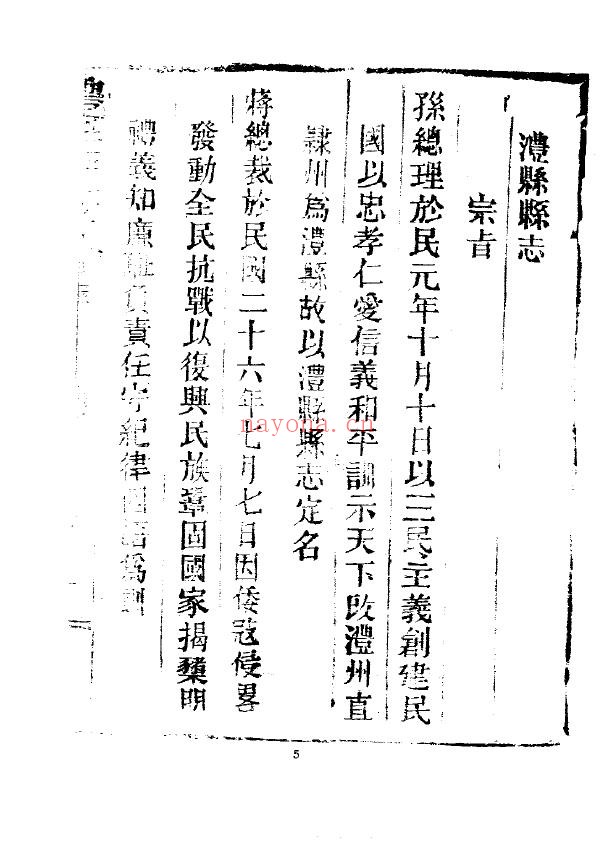 澧縣縣志
宗旨
孫總理於民元年十月十日以三民主義創建民
國以忠孝仁愛信義和平訓示天下改澧州直
隸州為澧縣故以澧縣縣志定名
蔣總裁於民國二十六年七月七日因倭寇侵畧
發動全民抗戰以復興民族鞏固國家揭櫫明
禮義知廉恥負責任守紀律四語爲訓
nayona.cn
5